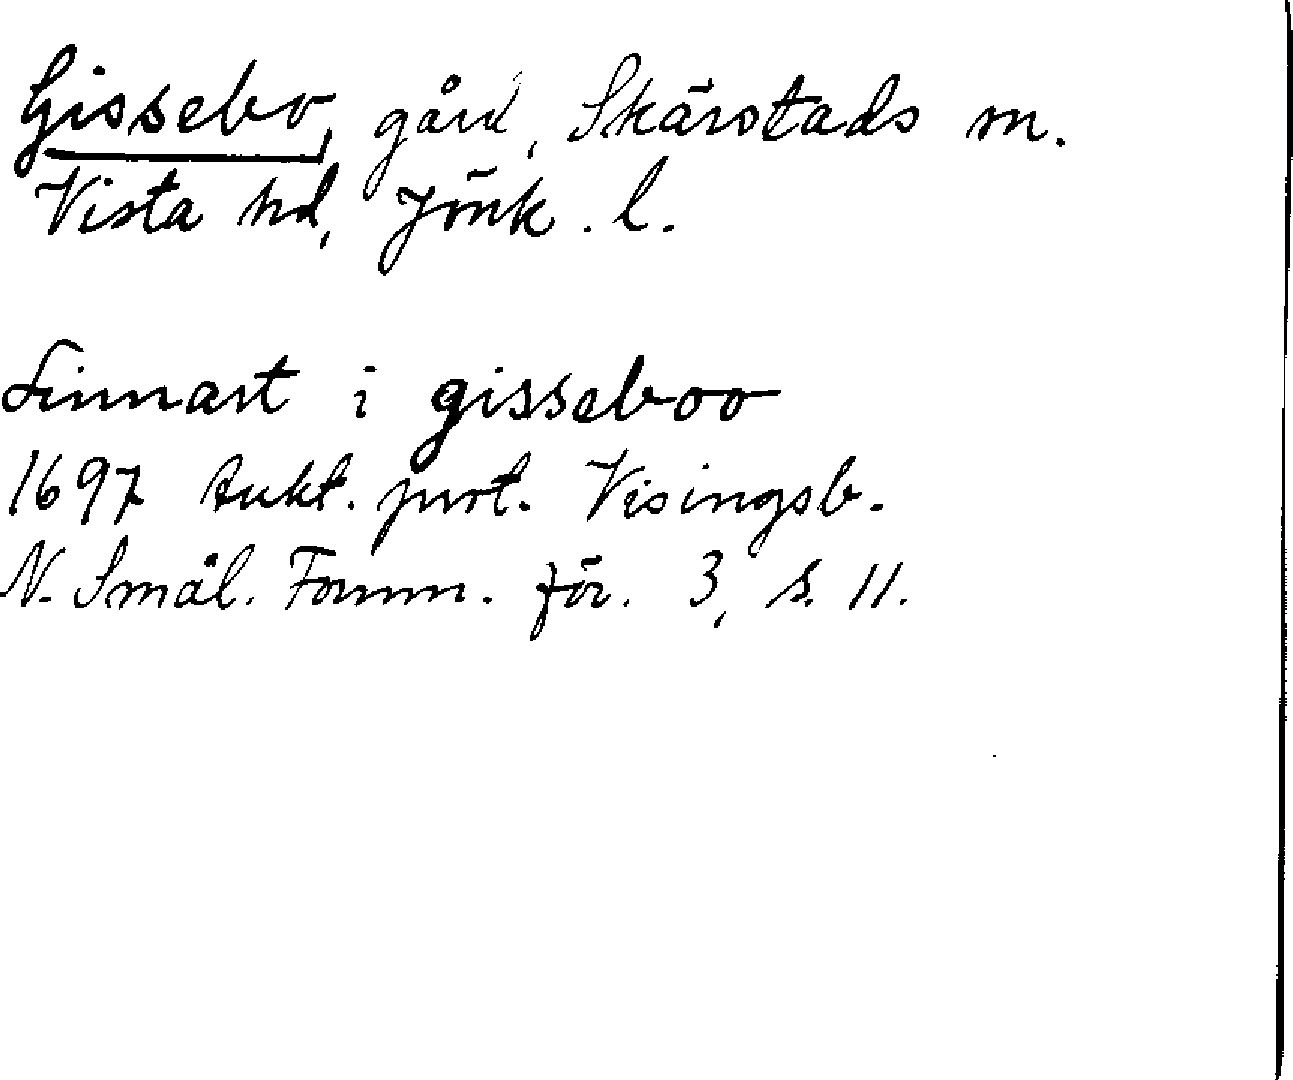 Gissebo, gård, Skärstads sn.
Vista hd, Jönk. l.
Linnart i gisseboo
1697 Aukt. prot. Visingsb.
N. Smål. Fornm. för. 3, s. 11.